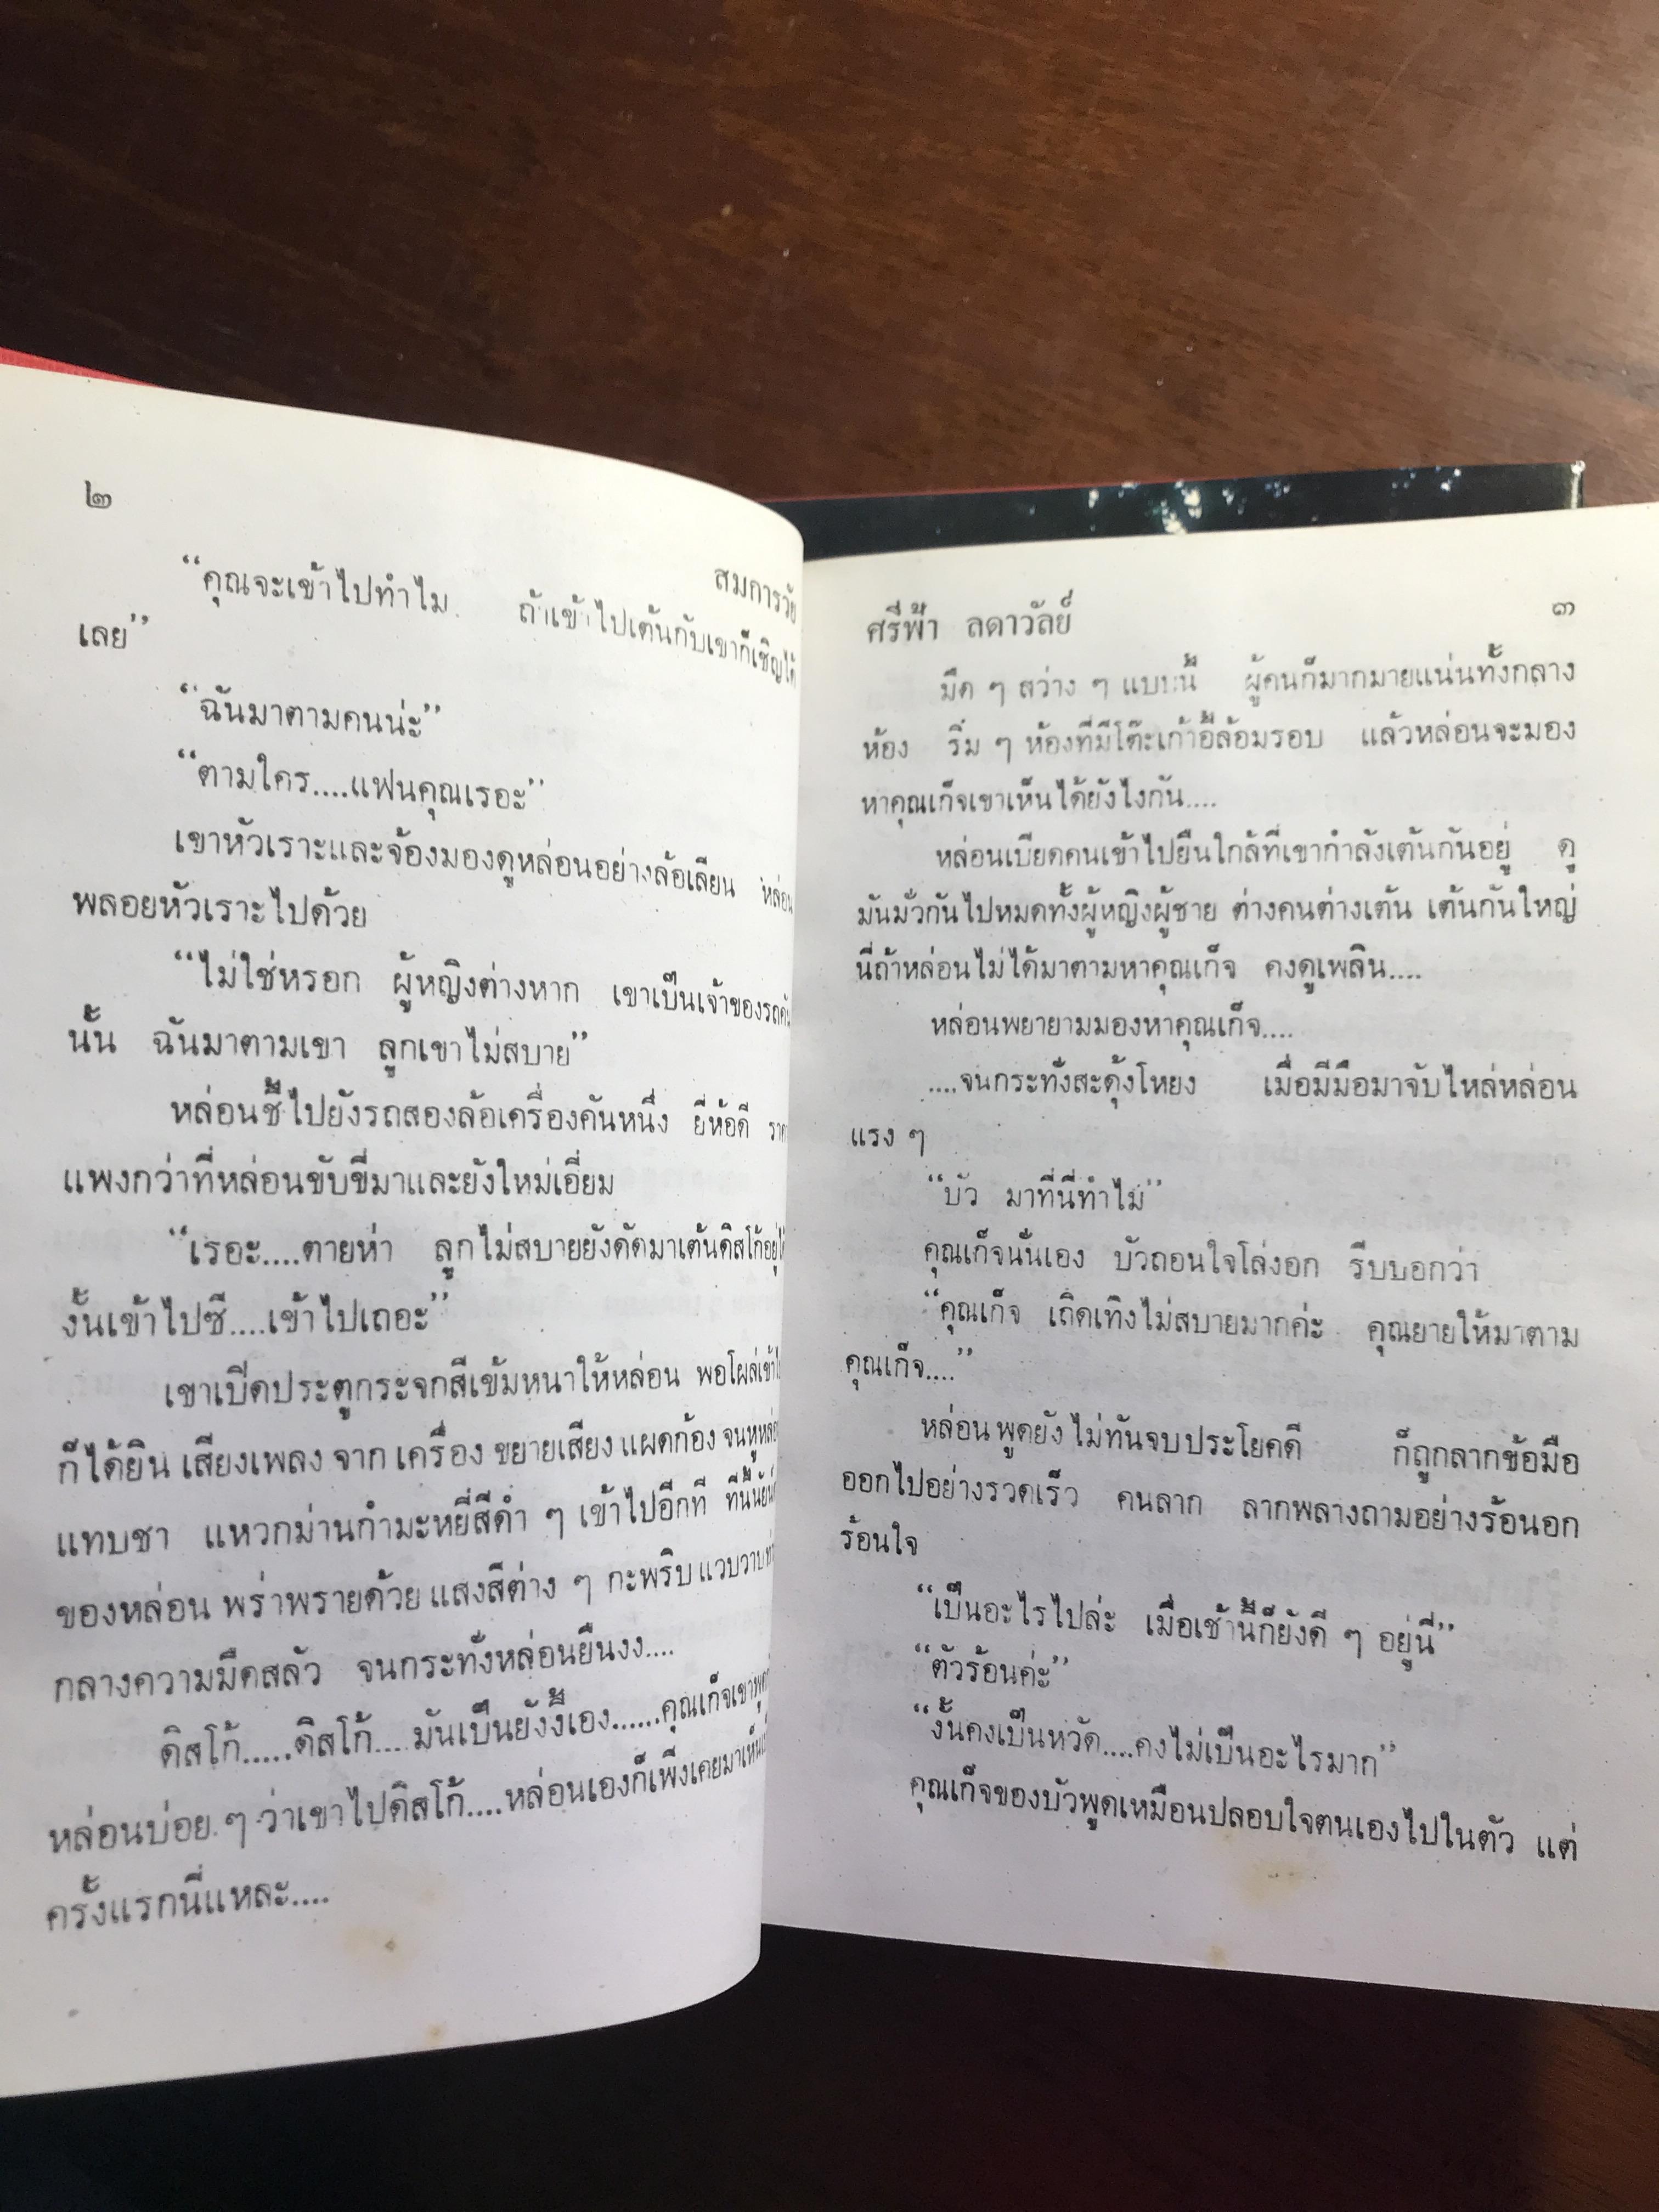 ๒
สมการวัย
“คุณจะเข้าไปทำไม ถ้าเข้าไปเต้นกับเขาก็เชิญได้
เลย”
“ฉันมาตามคนน่ะ”
“ตามใคร....แฟนคุณเรอะ”
เขาหัวเราะและจ้องมองดูหล่อนอย่างล้อเลียน หล่อน
พลอยหัวเราะไปด้วย
“ไม่ใช่หรอก ผู้หญิงต่างหาก เขาเป็นเจ้าของรถคัน
นั้น ฉันมาตามเขา ลูกเขาไม่สบาย”
หล่อนชี้ไปยังรถสองล้อเครื่องคันหนึ่ง ยี่ห้อดี
แพงกว่าที่หล่อนขับขี่มาและยังใหม่เอี่ยม
“เรอะ....ตายห่า ลูกไม่สบายยังดัดมาเต้นดิสโก้อยู่ได้
งั้นเข้าไปซี....เข้าไปเถอะ”
เขาเปิดประตูกระจกสีเข้มหนาให้หล่อน พอโผล่เข้าไป
ก็ได้ยิน เสียงเพลง จาก เครื่อง ขยายเสียง แผดก้อง จนหูหล่อน
แทบชา แหวกม่านกำมะหยี่สีดำ ๆ เข้าไปอีกที ทีนี้นัยน์
ของหล่อน พร่าพรายด้วย แสงสีต่าง ๆ กะพริบ แวบวาบ
กลางความมืดสลัว จนกระทั่งหล่อนยืนงง....
ดิสโก้......ดิสโก้....มันเป็นยังงี้เอง......คุณเก็จเขาพูด
หล่อนบ่อย ๆ ว่าเขาไปดิสโก้....หล่อนเองก็เพิ่งเคยมาเห็น
ครั้งแรกนี่แหละ....
ศรีฟ้า ลดาวัลย์
๓
มืด ๆ สว่าง ๆ แบบนี้ ผู้คนก็มากมายแน่นทั้งกลาง
ห้อง ริ่ม ๆ ห้องที่มีโต๊ะเก้าอี้ล้อมรอบ แล้วหล่อนจะมอง
หาคุณเก็จเขาเห็นได้ยังไงกัน....
หล่อนเบียดคนเข้าไปยืนใกล้ที่เขากำลังเต้นกันอยู่ ดู
มันมั่วกันไปหมดทั้งผู้หญิงผู้ชาย ต่างคนต่างเต้น เต้นกันใหญ่
นี่ถ้าหล่อนไม่ได้มาตามหาคุณเก็จ คงดูเพลิน....
หล่อนพยายามมองหาคุณเก็จ....
....จนกระทั่งสะดุ้งโหยง เมื่อมีมือมาจับไหล่หล่อน
แรง ๆ
“บัว มาที่นี่ทำไม”
คุณเก็จนั่นเอง บัวถอนใจโล่งอก รีบบอกว่า
“คุณเก็จ เถิดเทิงไม่สบายมากค่ะ คุณยายให้มาตาม
คุณเก็จ....”
หล่อน พูดยัง ไม่ทันจบ ประโยคดี ก็ถูกลากข้อมือ
ออกไปอย่างรวดเร็ว คนลาก ลากพลางถามอย่างร้อนอก
ร้อนใจ
“เป็นอะไรไปล่ะ เมื่อเช้านี้ก็ยังดี ๆ อยู่นี่”
“ตัวร้อนค่ะ”
“งั้นคงเป็นหวัด....คงไม่เป็นอะไรมาก”
คุณเก็จของบัวพูดเหมือนปลอบใจตนเองไปในตัว แต่